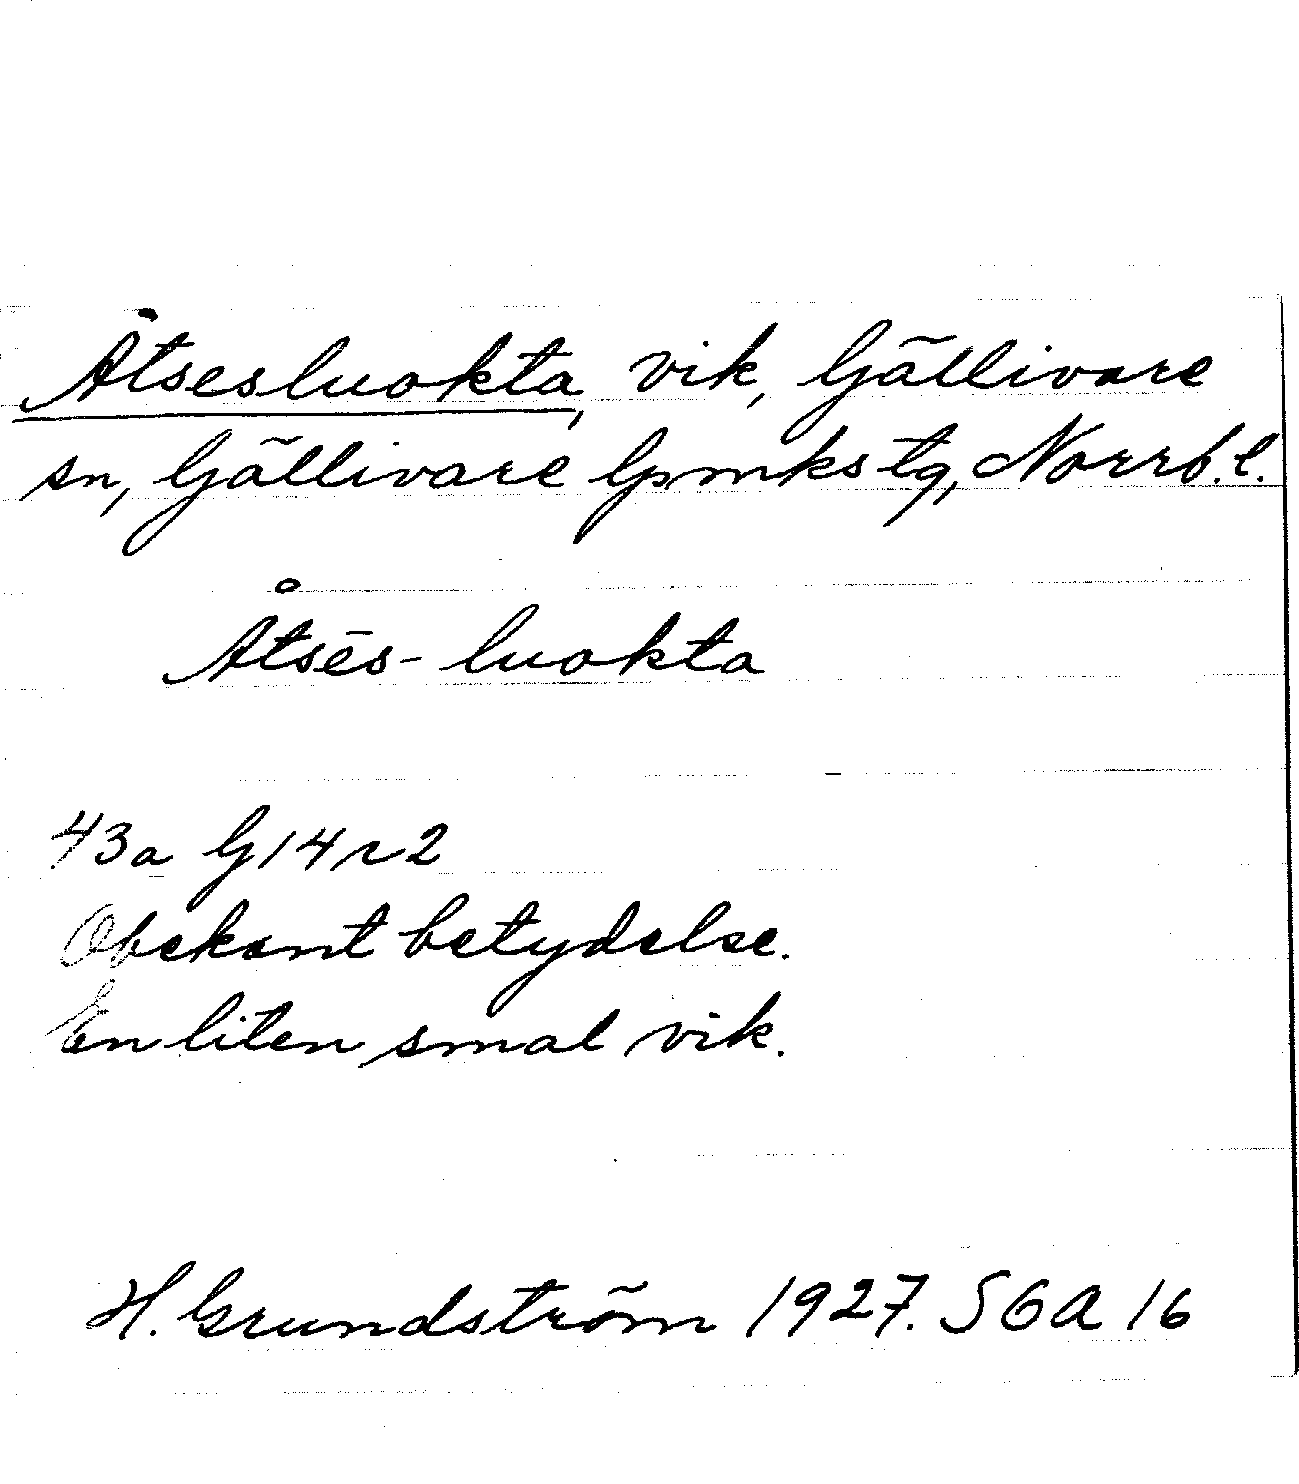 Åtsesluokta, vik, Gällivare
sn, Gällivare lpmkstg, Norrb.l.
Åtsēs-luokta
43a G14r2
Obekant betydelse.
En liten smal vik.
H. Grundström 1927. SGA 16